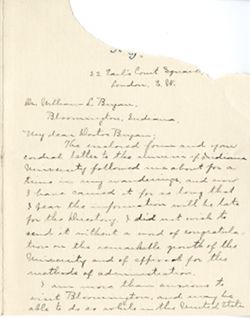 22 Earl's Court Square,
London, S. W.
Dr. William L. Bryan,
Bloomington, Indiana,
My dear Doctor Bryan:
The enclosed form and your
cordial letter to the alumni of Indiana
University followed me about for a
time in my wanderings, and now
I have carried it for so long that
I fear the information will be late
for the Directory. I did not wish to
send it without a word of congratula-
tion on the remarkable growth of the
University and of approval for the
methods of administration.
I am more than anxious to
visit Bloomington, and may be
able to do so while in the United States